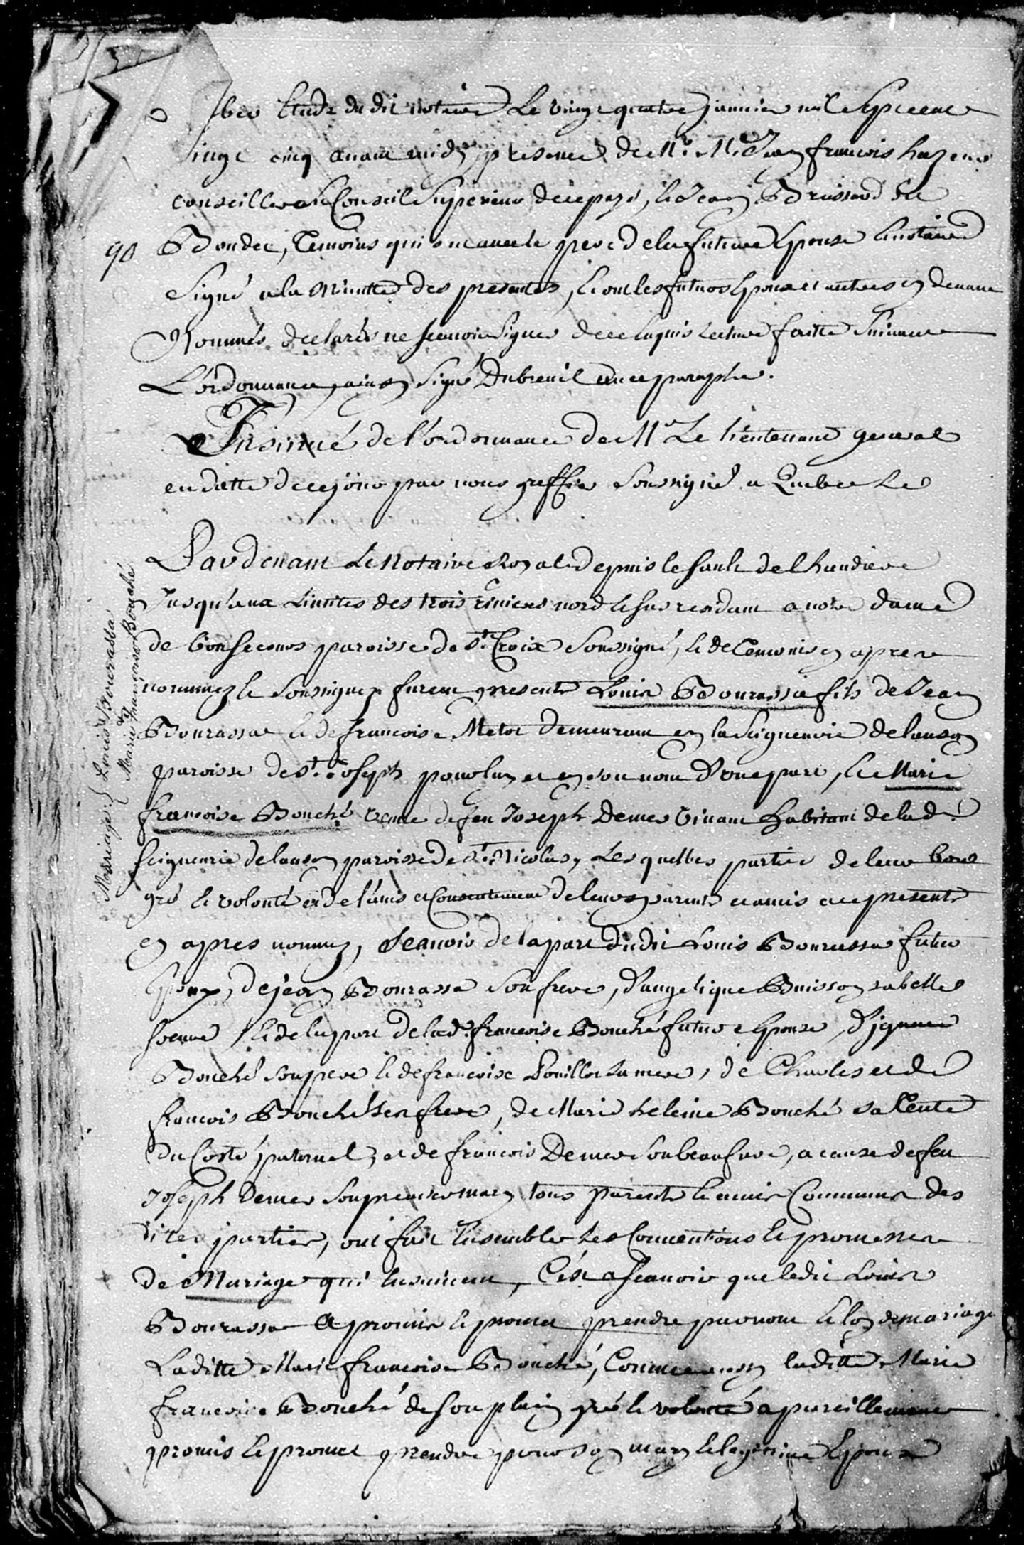 Etude du dit notaire Le vingt quatre janvier mil sept cent
vingt cinq avant midy presence de Mr Me Jean francois hazeur
conseiller au Conseil Superieur de ce pays, et Jean Brussard
Bondec, Temoins qui ont avec le pere de la future Epouse et notaire
Signé a la Minutte des presentes, et ont les futurs Epoux et autres cy devant
Nommés declaré ne scavoir Signer de ce enquis Lecture faitte Suivant
L'ordonnance, ainsy Signé Dubreuil avec paraphe.
Insinué de l'ordonnance de Mr Le lieutenant general
en datte de ce jour par nous greffier Soussigné a Quebec Le
90
Pardevant Le Notaire Royal depuis le Sault de la Chaudiere
Jusqu'aux Limittes des trois Rivieres nord et Sud residant a notre dame
de bonsecours paroisse de Ste Croix Soussigné, et de temoins cy apres
nommez et Soussignez furent presents Louis Bourassa fils de Jean
Bourassa et de francoise Metot demeurant en la Seigneurie de lauson
paroisse de St Joseph pour luy et en son nom d'une part, et Marie
francoise Bouché veuve de feu Joseph Demer vivant habitant de la de
Seigneurie de lauson paroisse de St Nicolas, Lesquelles parties de leur bon
gré et volonté et de l'avis et Consentement de leurs parents et amis a ce presents
cy apres nommez, Scavoir de la part du dit Louis Bourassa futur
Epoux, de jean Bourassa Son frere, d'angelique Buisson sa belle
Soeur, et de la part de la de francoise Bouché future Epouse, d'ignace
Bouché Son pere et de francoise Pouillot sa mere, de Charles et de
francois Bouché Ses frere, de Marie heleine Bouché sa tente
du Costé paternel, et de francois Demer Son beaufrere, a cause de feu
Joseph Demer Son premier mary tous parents et amis Communs des
dites parties, ont fait Ensemble Les Conventions et promesses
de Mariage qui Ensuivent, C'est a Scavoir que ledit Louis
Bourassa a promis et promet prendre par nom et loy de mariage
Laditte Marie francoise Bouché, Comme aussy laditte Marie
francoise Bouché de Son plein gré et volonté a pareillement
promis et promet prendre pour son mary et legitime Epoux
Marriage Louis Bourassa
Marie francoise Bouché